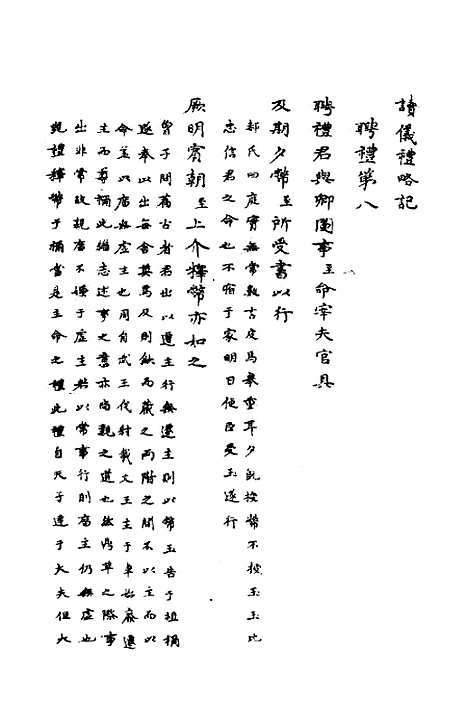 讀儀禮略記
聘禮第八
聘禮君與卿圖事至命宰夫官具
及期夕幣至所受書以行
郝氏曰庭實無常數古皮馬乗重耳夕既授幣不授玉玉比
忠信君之命也不宿于家明日使臣受玉遂行
厥明賓朝至上介釋幣亦如之
曾子問舊古者君出以遷主行無遷主則以幣玉告于祖禰
遂奉以出每舍奠焉反則斂而藏之兩階之間不以主而以
命盖以廟無虚主也周自武王伐紂載文王主于車出蔡遷
主而尊禰此繼志述事之意亦尚親之道也然鼎革之際事
出非常故親廟不嫌于虚主若以常事行則廟主仍無虚也
覲禮釋幣于禰當是主命之禮此禮自天子達于大夫但大